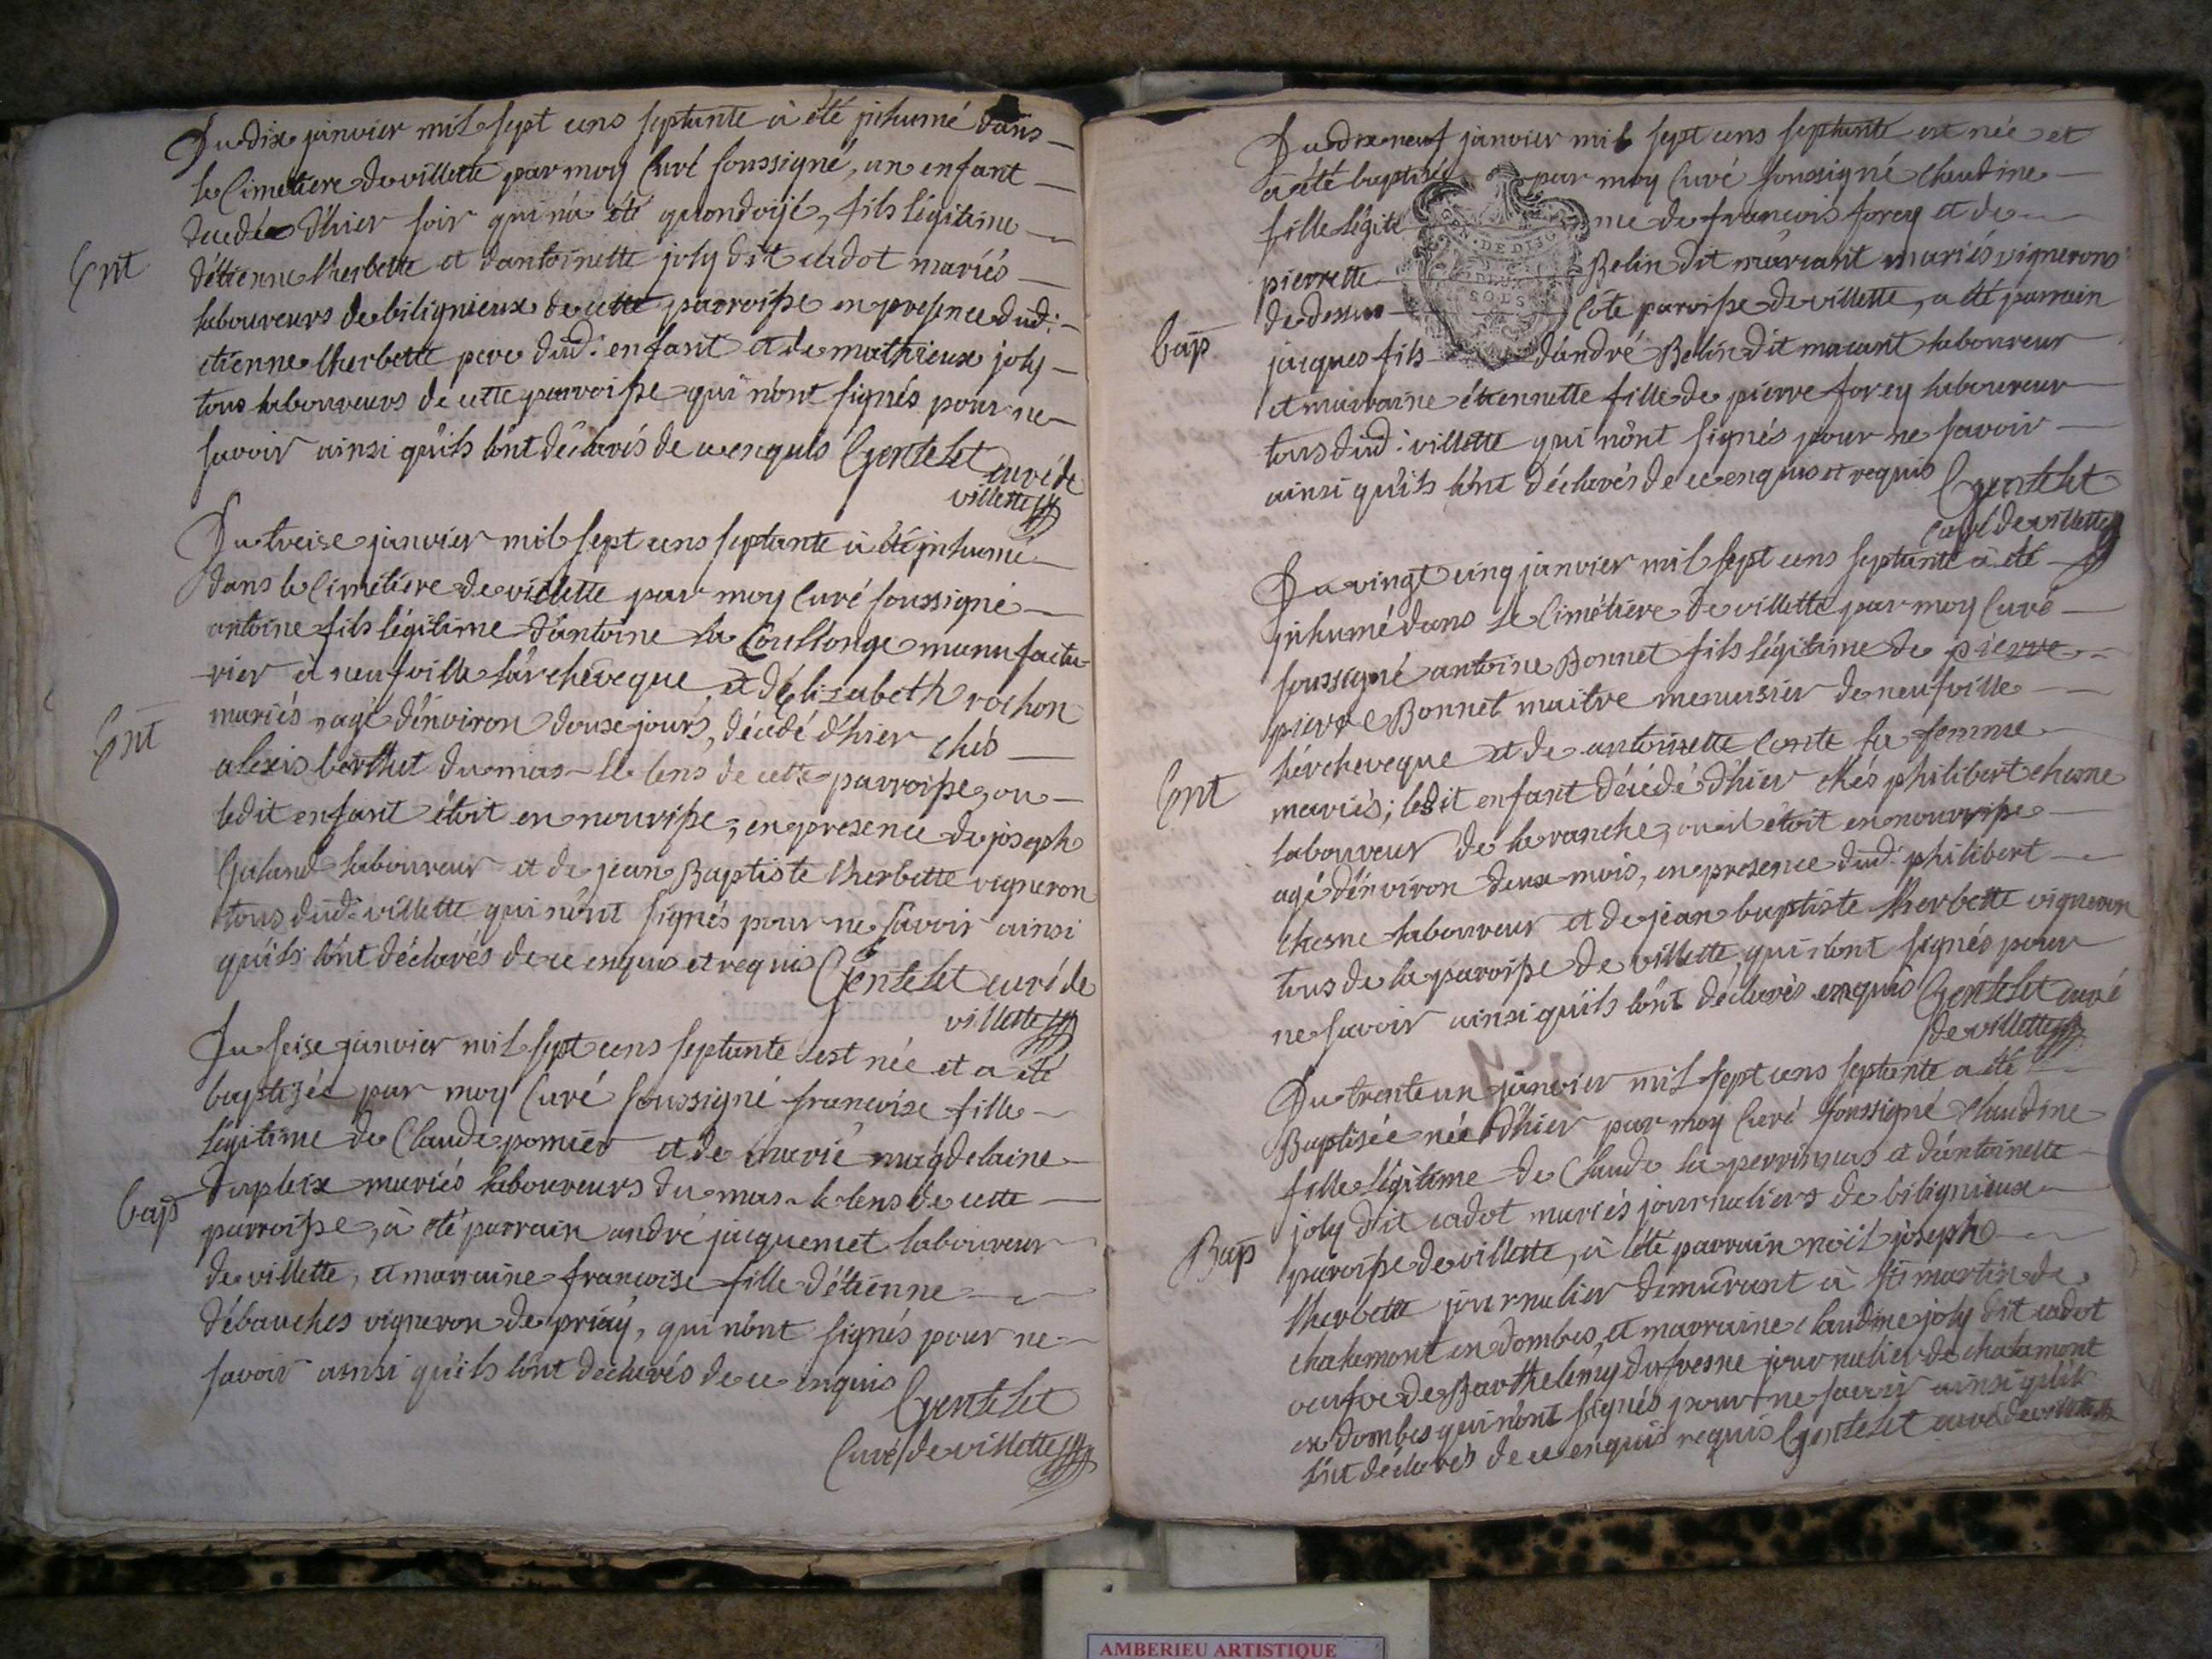 Du dix janvier mil sept cens septante à été jnhumé dans
le Cimetiere de villette par moy Curé soussigné, un enfant
decédé d'hier soir qui n'a été qu'ondoijé, fils légitime
Ent
d'étienne lherbette et d'antoinette joly dit cadot mariés
laboureurs de bilignieux de cette parroisse en presence dud.
etienne lherbette pere dud. enfant et de mathieux joly
tous laboureurs de cette parroisse qui n'ont signés pour ne
savoir ainsi qu'ils l'ont déclarés de ce enquis Gentelet curé de
villette
Du treise janvier mil sept cens septante à été jnhumé
dans le Cimétiere de villette par moy Curé soussigné
antoine fils légitime d'antoine la Coullonge manufactu
rier à neufville l'archeveque et d'élizabeth rochon
Ent
mariés, agé d'environ douse jours, décédé d'hier chés
alexis berthet du mas le lens de cette parroisse, ou
ledit enfant étoit en nourisse, en presence de joseph
Galand laboureur et de jean Baptiste lherbette vigneron
tous dud. villette qui n'ont signés pour ne savoir ainsi
qu'ils l'ont déclarés de ce enquis et requis Gentelet curé de
villette
Du seise janvier mil sept cens septante est née et a été
baptisée par moy Curé soussigné francoise fille
légitime de Claude pomier et de marie magdelaine
Bap
dupleix mariés laboureurs du mas le lens de cette
parroisse, à été parrain andré jacquemet laboureur
de villette, et marraine francoise fille d'étienne
débauches vigneron de priaÿ, qui n'ont signés pour ne
savoir ainsi qu'ils l'ont declarés de ce enquis
Gentelet
Curé de villette
Du dix neuf janvier mil sept cens septante est née et
à été baptisée par moy Curé soussigné claudine
fille légiti me de francois forey et de
GEN. DE DIJO
DEUX
SOLS
pierrette Belin dit mariant mariés vignerons
de dessus Côte paroisse de villette, a été parrain
Bap
jacques fils d'andré Belin dit mariant laboureur
et marraine étiennette fille de pierre forey laboureur
tous dud. villette qui n'ont signés pour ne savoir
ainsi qu'ils l'ont déclarés de ce enquis et requis Gentelet
Curé de villette
Du vingt cinq janvier mil sept cens septante à été
jnhumé dans le Cimétiere de villette par moy Curé
soussigné antoine Bonnet fils légitime de pierre
pierre Bonnet maitre menuisier de neufville
l'ércheveque et de antoinette Conte sa femme
Ent
mariés; ledit enfant décédé d'hier chés philibert chesne
laboureur de la ranche, ou il étoit en nourrisse
agé d'environ deux mois, en presence dud. philibert
chesne laboureur et de jean baptiste lherbette vigneron
tous de la paroisse de villette, qui n'ont signés pour
ne savoir ainsi qu'ils l'ont déclarés enquis Gentelet curé
de villette
Du trente un janvier mil sept cens septante a été
Baptisée née d'hier par moy Curé soussigné claudine
fille légitime de Claude la perrinnas et d'antoinette
joly dit cadot mariés journaliers de bilignieux
Bap
paroisse de villette, à été parrain noël joseph
lherbette journalier demeurant à st martin de
chalamont en dombes, et marraine claudine joly dit cadot
veufve de Barthelemy dufresne journalier de chalamont
en dombes qui n'ont signés pour ne savoir ainsi qu'ils
l'ont déclarés de ce enquis requis Gentelet curé de villette
AMBERIEU ARTISTIQUE